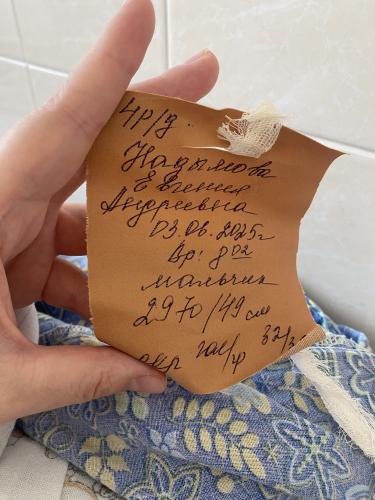 4р/з.
Надымова
Евгения
Андреевна
03.06.2025г
Вр: 8 02
мальчик
2970/49 см
окр гол/гр 32/3